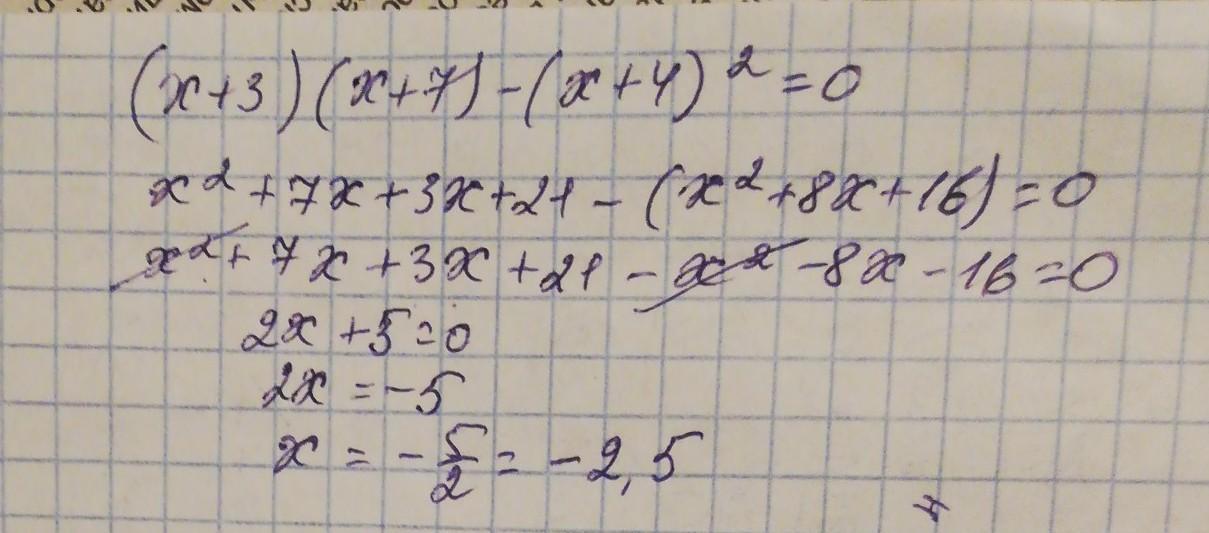 (x+3)(x+7)-(x+4)²=0
x²+7x+3x+21-(x²+8x+16)=0
x²+7x+3x+21-x²-8x-16=0
2x+5=0
2x=-5
x=-5/2=-2,5